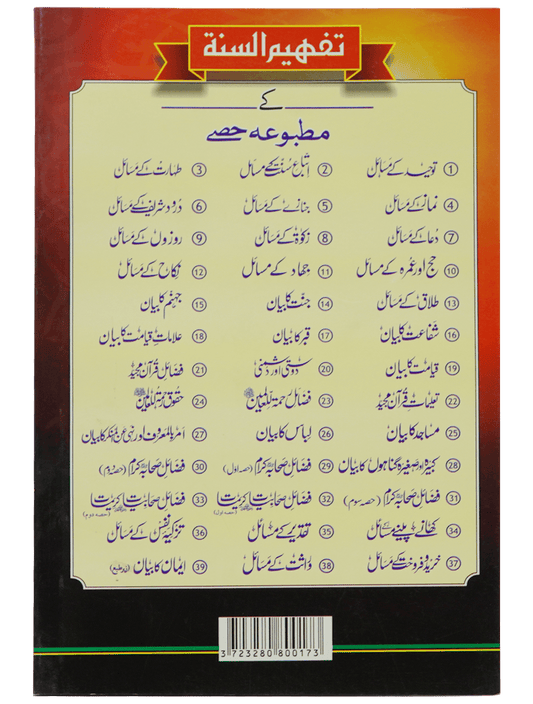 تفہیم السنة
کے
مطبوعہ حصے
① توحید کے مسائل ② اتباع سنت کے مسائل ③ طہارت کے مسائل
④ نماز کے مسائل ⑤ جنازے کے مسائل ⑥ درود شریف کے مسائل
⑦ دعا کے مسائل ⑧ زکوٰۃ کے مسائل ⑨ روزوں کے مسائل
⑩ حج اور عمرہ کے مسائل ⑪ جہاد کے مسائل ⑫ نکاح کے مسائل
⑬ طلاق کے مسائل ⑭ جنت کا بیان ⑮ جہنم کا بیان
⑯ شفاعت کا بیان ⑰ قبر کا بیان ⑱ علامات قیامت کا بیان
⑲ قیامت کا بیان ⑳ دوستی اور دشمنی ㉑ فضائل قرآن مجید
㉒ تعلیمات قرآن مجید ㉓ فضائل رحمۃ للعالمین ﷺ ㉔ حقوق رحمۃ للعالمین ﷺ
㉕ مساجد کا بیان ㉖ لباس کا بیان ㉗ امر بالمعروف اور نہی عن المنکر کا بیان
㉘ کبیرہ اور صغیرہ گناہوں کا بیان ㉙ فضائل صحابہ کرام (حصہ اول) ㉚ فضائل صحابہ کرام (حصہ دوم)
㉛ فضائل صحابہ کرام (حصہ سوم) ㉜ فضائل صحابیات (حصہ اول) ㉝ فضائل صحابیات (حصہ دوم)
㉞ کھانے پینے کے مسائل ㉟ تقدیر کے مسائل ㊱ تزکیہ نفس کے مسائل
㊲ خرید و فروخت کے مسائل ㊳ وراثت کے مسائل ㊴ ایمان کا بیان (زیر طبع)
3723280800173